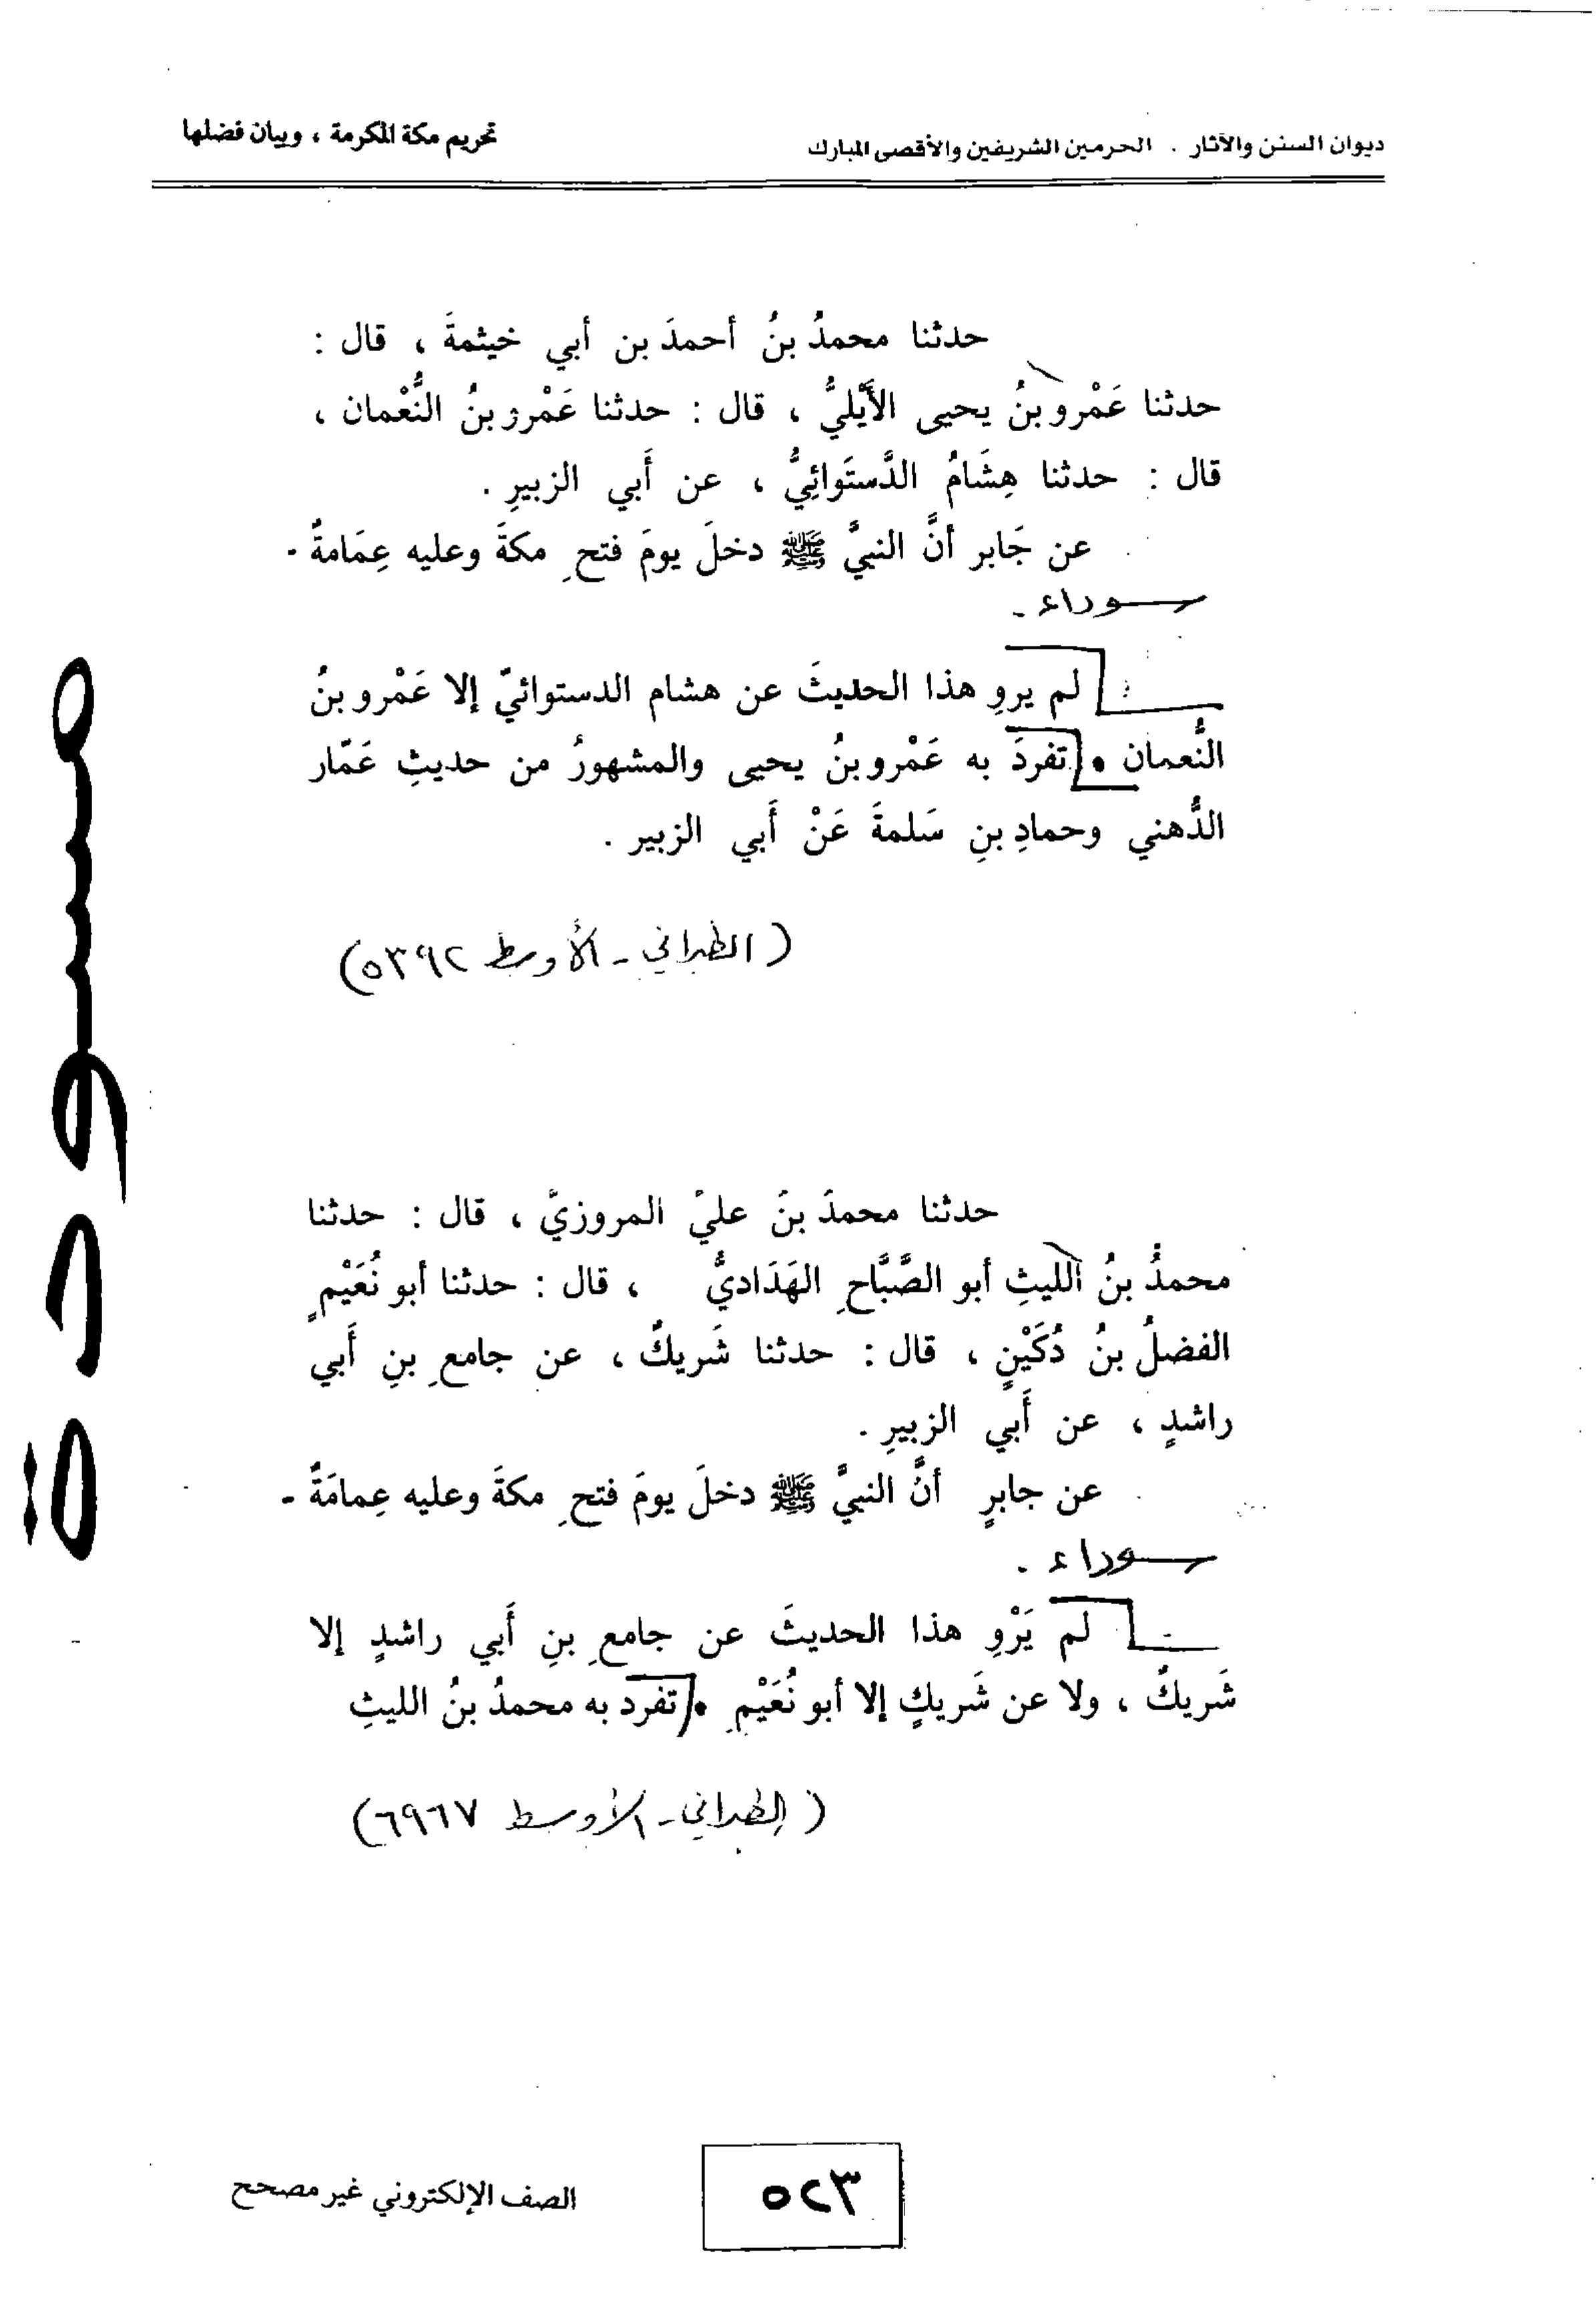 ديوان السنن والآثار . الحرمين الشريفين والأقصى المبارك
تحريم مكة المكرمة ، وبيان فضلها
حدثنا محمدُ بنُ أحمدَ بن أبي خيثمةَ ، قال :
حدثنا عَمْرو بنُ يحيى الأَيْليُّ ، قال : حدثنا عَمْرو بنُ النُّعْمان ،
قال : حدثنا هِشَامُ الدَّستَوائِيُّ ، عن أَبي الزبيرِ .
عن جَابر أنَّ النبيَّ ﷺ دخلَ يومَ فتحِ مكةَ وعليه عِمَامةٌ -
سوداء .
لم يروِ هذا الحديثَ عن هشام الدستوائيّ إلا عَمْرو بنُ
النُّعمان . تفردَ به عَمْرو بنُ يحيى والمشهورُ من حديثِ عَمّار
الدُّهني وحمادِ بنِ سَلمةَ عَنْ أَبي الزبير .
( الطبراني - الأوسط ٥٣٩٢)
حدثنا محمدُ بنُ عليّ المروزيّ ، قال : حدثنا
محمدُ بنُ الليثِ أبو الصَّبَّاحِ الهَدَاديُّ ، قال : حدثنا أبو نُعَيْمٍ
الفضلُ بنُ دُكَيْنٍ ، قال : حدثنا شَريكٌ ، عن جامعِ بنِ أَبي
راشدٍ ، عن أَبي الزبيرِ .
عن جابرٍ أنَّ النبيَّ ﷺ دخلَ يومَ فتحِ مكةَ وعليه عِمامَةٌ -
سوداء .
لم يَرْوِ هذا الحديثَ عن جامعِ بنِ أَبي راشدٍ إلا
شَريكٌ ، ولا عن شَريكٍ إلا أبو نُعَيْمٍ . تفرد به محمدُ بنُ الليثِ
( الطبراني - الأوسط ٦٩٦٧)
مسودة
٥٢٣
الصف الإلكتروني غير مصحح